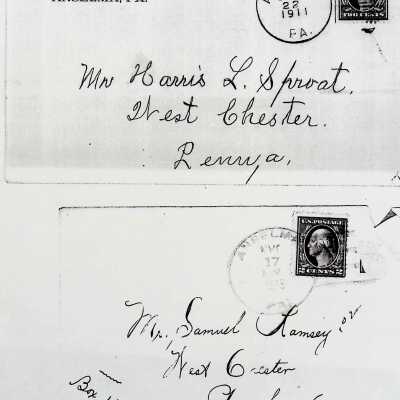 ANSELMA, PA.
22
1911
PA.
TWO CENTS
Mr Harris L. Sproat.
West Chester.
Penn'a,
ANSELMA
17
U.S. POSTAGE
2 CENTS 2
Mr. Samuel Ramsey
West Chester
Box